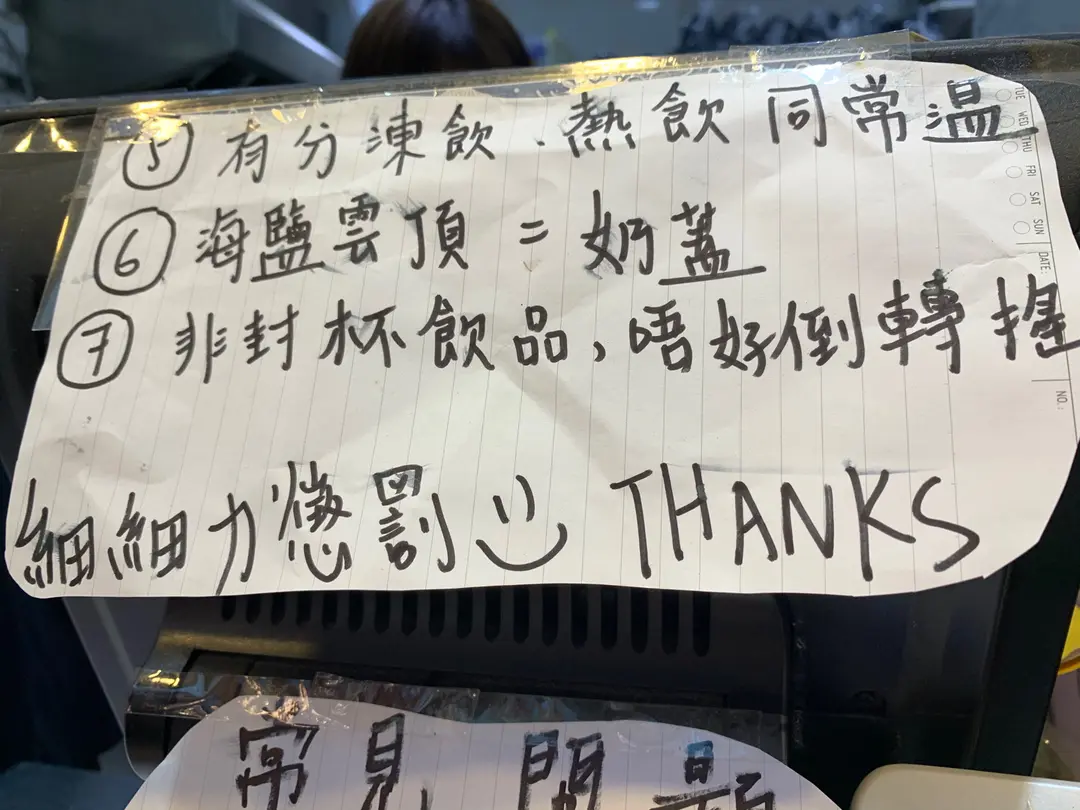 ⑤ 有分凍飲、熱飲同常溫
⑥ 海鹽雲頂 = 奶蓋
⑦ 非封杯飲品，唔好倒轉搖
細細力懲罰 :) THANKS
TUE WED THU FRI SAT SUN
DATE:
NO.:
常見問題